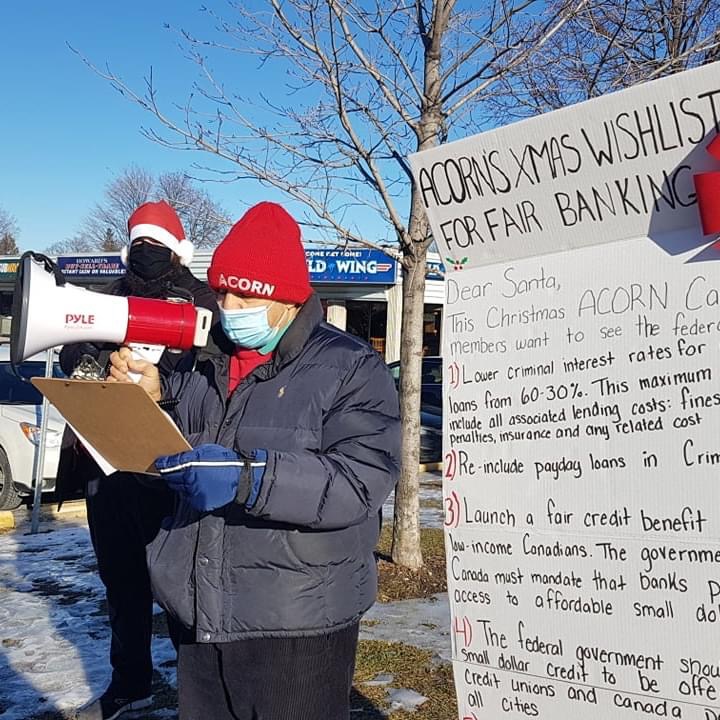 HOWARD'S
BUY-SELL-TRADE
INSTANT CASH ON VALUABLES!
LD WING
ACORN
PYLE
ACORN'S XMAS WISHLIST
FOR FAIR BANKING
Dear Santa,
This Christmas ACORN Ca
members want to see the federa
1) Lower criminal interest rates for
loans from 60-30%. This maximum
include all associated lending costs: fines
penalties, insurance and any related cost
2) Re-include payday loans in Crim
3) Launch a fair credit benefit
low-income Canadians. The governme
Canada must mandate that banks p
access to affordable small dol
4) The federal government shou
small dollar credit to be offe
credit unions and canada
all cities